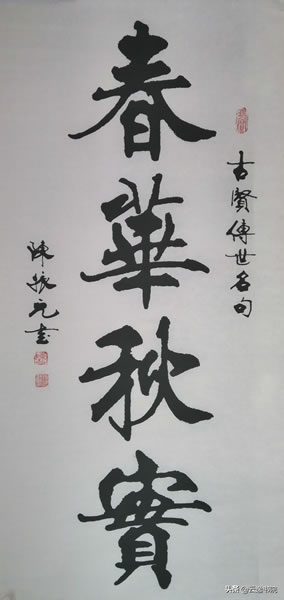 古賢傳世名句
春華秋實
陳振元書
头条@云逸书院